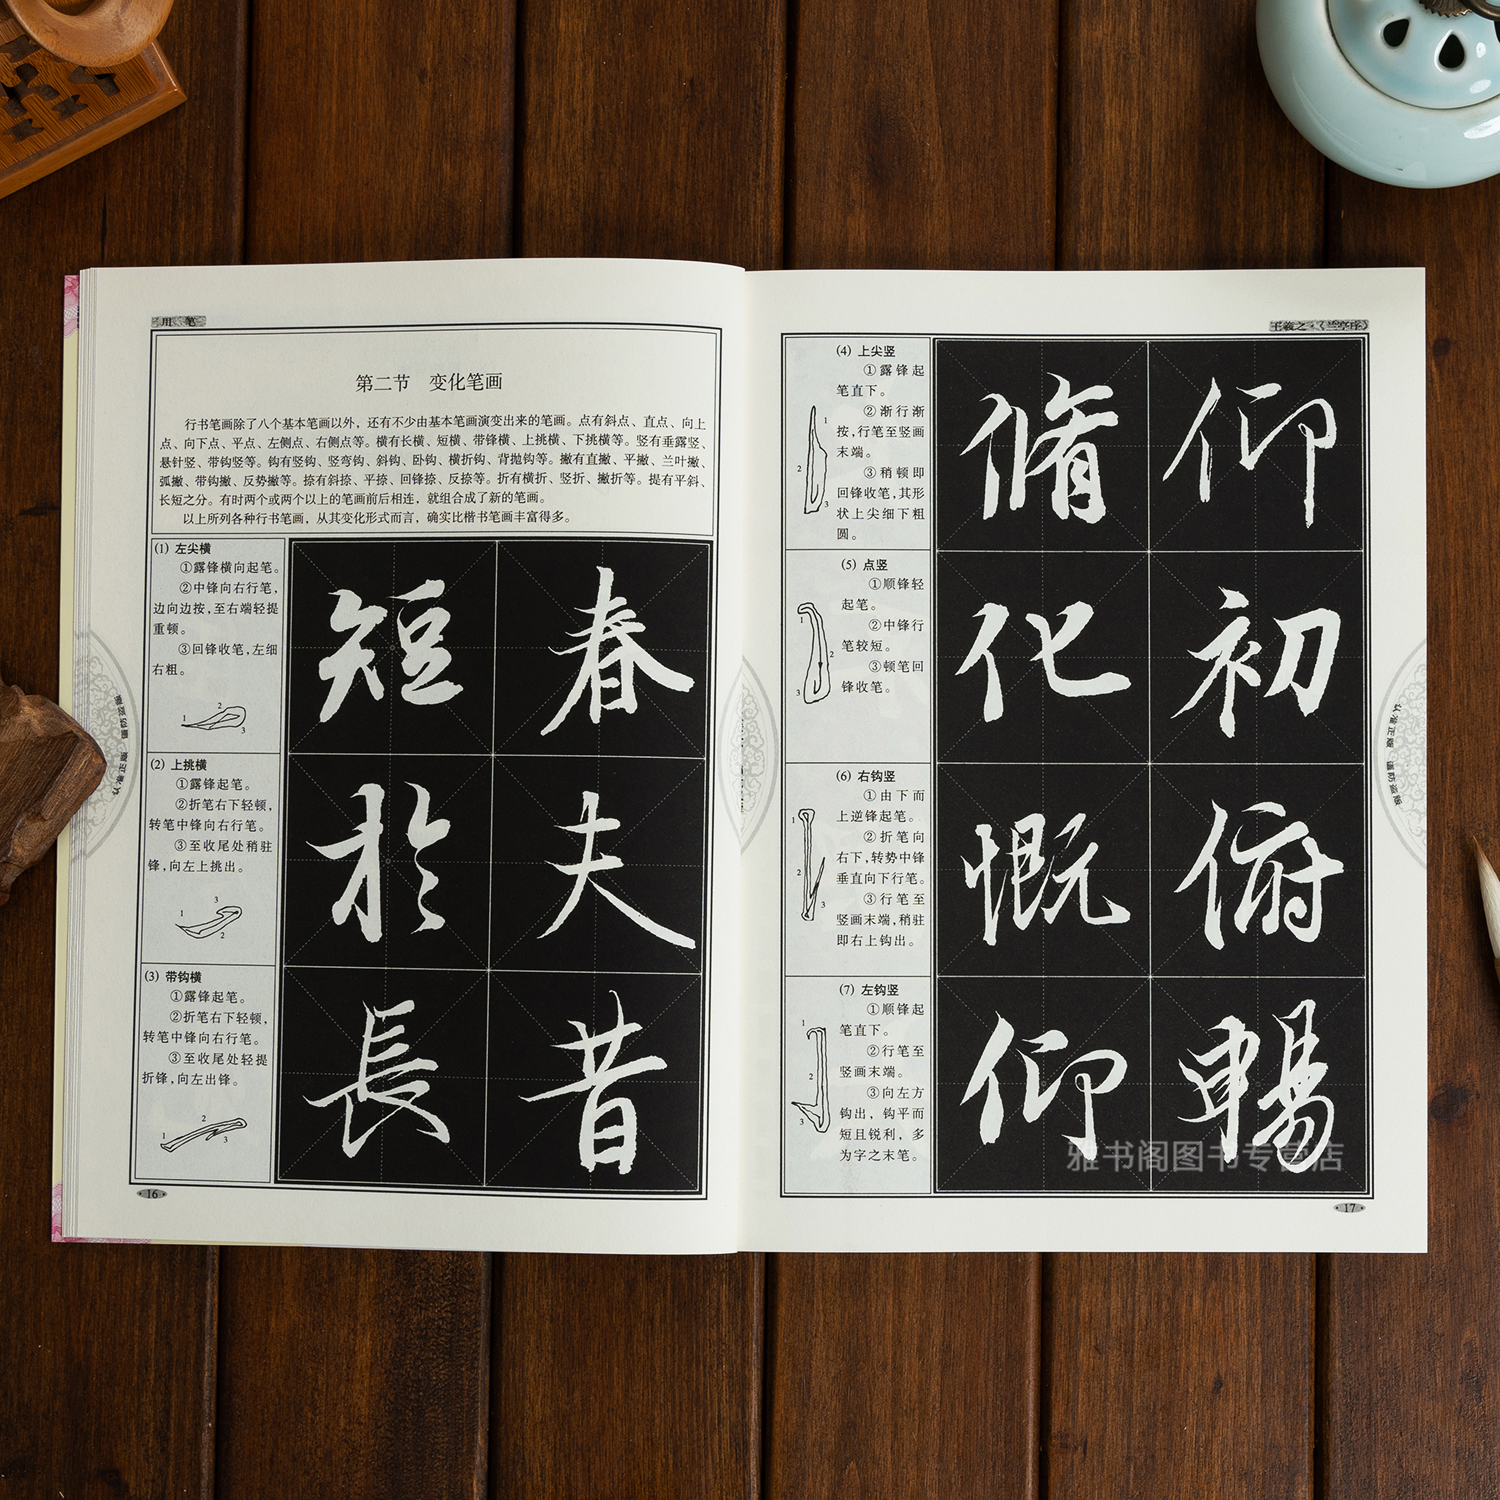 用 笔
第二节 变化笔画
行书笔画除了八个基本笔画以外，还有不少由基本笔画演变出来的笔画。点有斜点、直点、向上
点、向下点、平点、左侧点、右侧点等。横有长横、短横、带锋横、上挑横、下挑横等。竖有垂露竖、
悬针竖、带钩竖等。钩有竖钩、竖弯钩、斜钩、卧钩、横折钩、背抛钩等。撇有直撇、平撇、兰叶撇、
弧撇、带钩撇、反势撇等。捺有斜捺、平捺、回锋捺、反捺等。折有横折、竖折、撇折等。提有平斜、
长短之分。有时两个或两个以上的笔画前后相连，就组合成了新的笔画。
以上所列各种行书笔画，从其变化形式而言，确实比楷书笔画丰富得多。
(1) 左尖横
①露锋横向起笔。
②中锋向右行笔，
边向边按，至右端轻提
重顿。
③回锋收笔，左细
右粗。
1 2 3
短 春
(2) 上挑横
①露锋起笔。
②折笔右下轻顿，
转笔中锋向右行笔。
③至收尾处稍驻
锋，向左上挑出。
1 2 3
於 夫
(3) 带钩横
①露锋起笔。
②折笔右下轻顿，
转笔中锋向右行笔。
③至收尾处轻提
折锋，向左出锋。
1 2 3
長 昔
16
认准正版 谨防盗版
王羲之·《兰亭序》
(4) 上尖竖
①露锋起
笔直下。
②渐行渐
按，行笔至竖画
末端。
③稍顿即
回锋收笔，其形
状上尖细下粗
圆。
1 2 3
脩 仰
(5) 点竖
①顺锋轻
起笔。
②中锋行
笔较短。
③顿笔回
锋收笔。
1 2 3
化 初
(6) 右钩竖
①由下而
上逆锋起笔。
②折笔向
右下，转势中锋
垂直向下行笔。
③行笔至
竖画末端，稍驻
即右上钩出。
1 2 3
慨 俯
(7) 左钩竖
①顺锋起
笔直下。
②行笔至
竖画末端。
③向左方
钩出，钩平而
短且锐利，多
为字之末笔。
1 2 3
仰 暢
17
认准正版 谨防盗版
雅书阁图书专营店